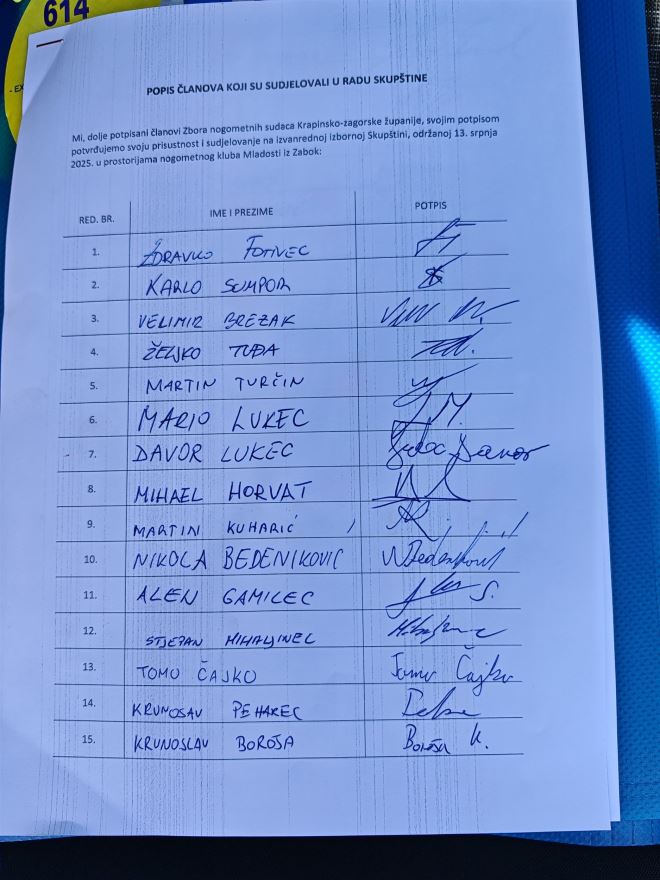 614
- EX
POPIS ČLANOVA KOJI SU SUDJELOVALI U RADU SKUPŠTINE
Mi, dolje potpisani članovi Zbora nogometnih sudaca Krapinsko-zagorske županije, svojim potpisom
potvrđujemo svoju prisustnost i sudjelovanje na izvanrednoj izbornoj Skupštini, održanoj 13. srpnja
2025. u prostorijama nogometnog kluba Mladosti iz Zabok:
RED. BR. IME I PREZIME POTPIS
1. ZDRAVKO FOTIVEC
2. KARLO SUMPOR
3. VELIMIR BREZAK
4. ŽELJKO TUĐA
5. MARTIN TURČIN
6. MARIO LUKEC
7. DAVOR LUKEC
8. MIHAEL HORVAT
9. MARTIN KUHARIĆ
10. NIKOLA BEDENIKOVIĆ
11. ALEN GAMILEC
12. STJEPAN MIHALJINEC
13. TOMO ČAJKO Tomo Čajko
14. KRUNOSAV PEHAREC
15. KRUNOSLAV BOROŠA Boroša K.